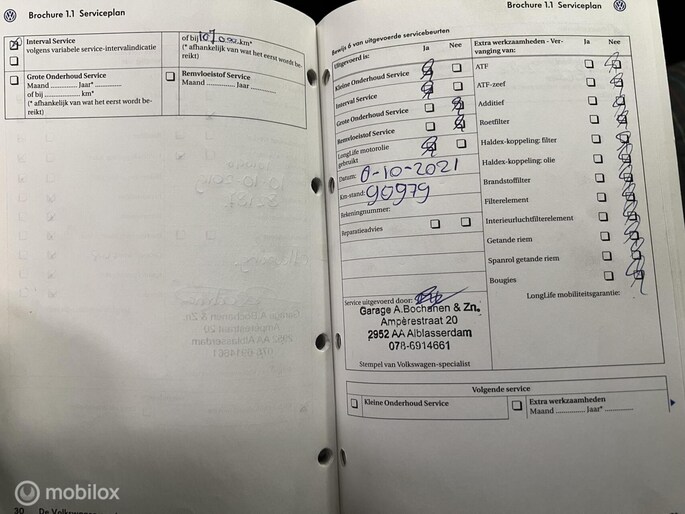 Brochure 1.1 Serviceplan
Interval Service
volgens variabele service-intervalindicatie
of bij 107 000 km*
(* afhankelijk van wat het eerst wordt be-
reikt)
Grote Onderhoud Service
Maand ............. Jaar*.............
of bij ................. km*
(* afhankelijk van wat het eerst wordt be-
reikt)
Remvloeistof Service
Maand ............. Jaar.............
30 De Volkswagen
Brochure 1.1 Serviceplan
Bewijs 6 van uitgevoerde servicebeurten
Uitgevoerd is: Ja Nee
Kleine Onderhoud Service
Interval Service
Grote Onderhoud Service
Remvloeistof Service
LongLife motorolie
gebruikt
Datum: 6-10-2021
Km-stand: 90979
Rekeningnummer:
Reparatieadvies
Service uitgevoerd door:
Garage A.Bochanen & Zn.
Ampèrestraat 20
2952 AA Alblasserdam
078-6914661
Stempel van Volkswagen-specialist
Extra werkzaamheden - Ver-
vanging van: Ja Nee
ATF
ATF-zeef
Additief
Roetfilter
Haldex-koppeling: filter
Haldex-koppeling: olie
Brandstoffilter
Filterelement
Interieurluchtfilterelement
Getande riem
Spanrol getande riem
Bougies
LongLife mobiliteitsgarantie:
Volgende service
Kleine Onderhoud Service
Extra werkzaamheden
Maand ............. Jaar*.............
mobilox